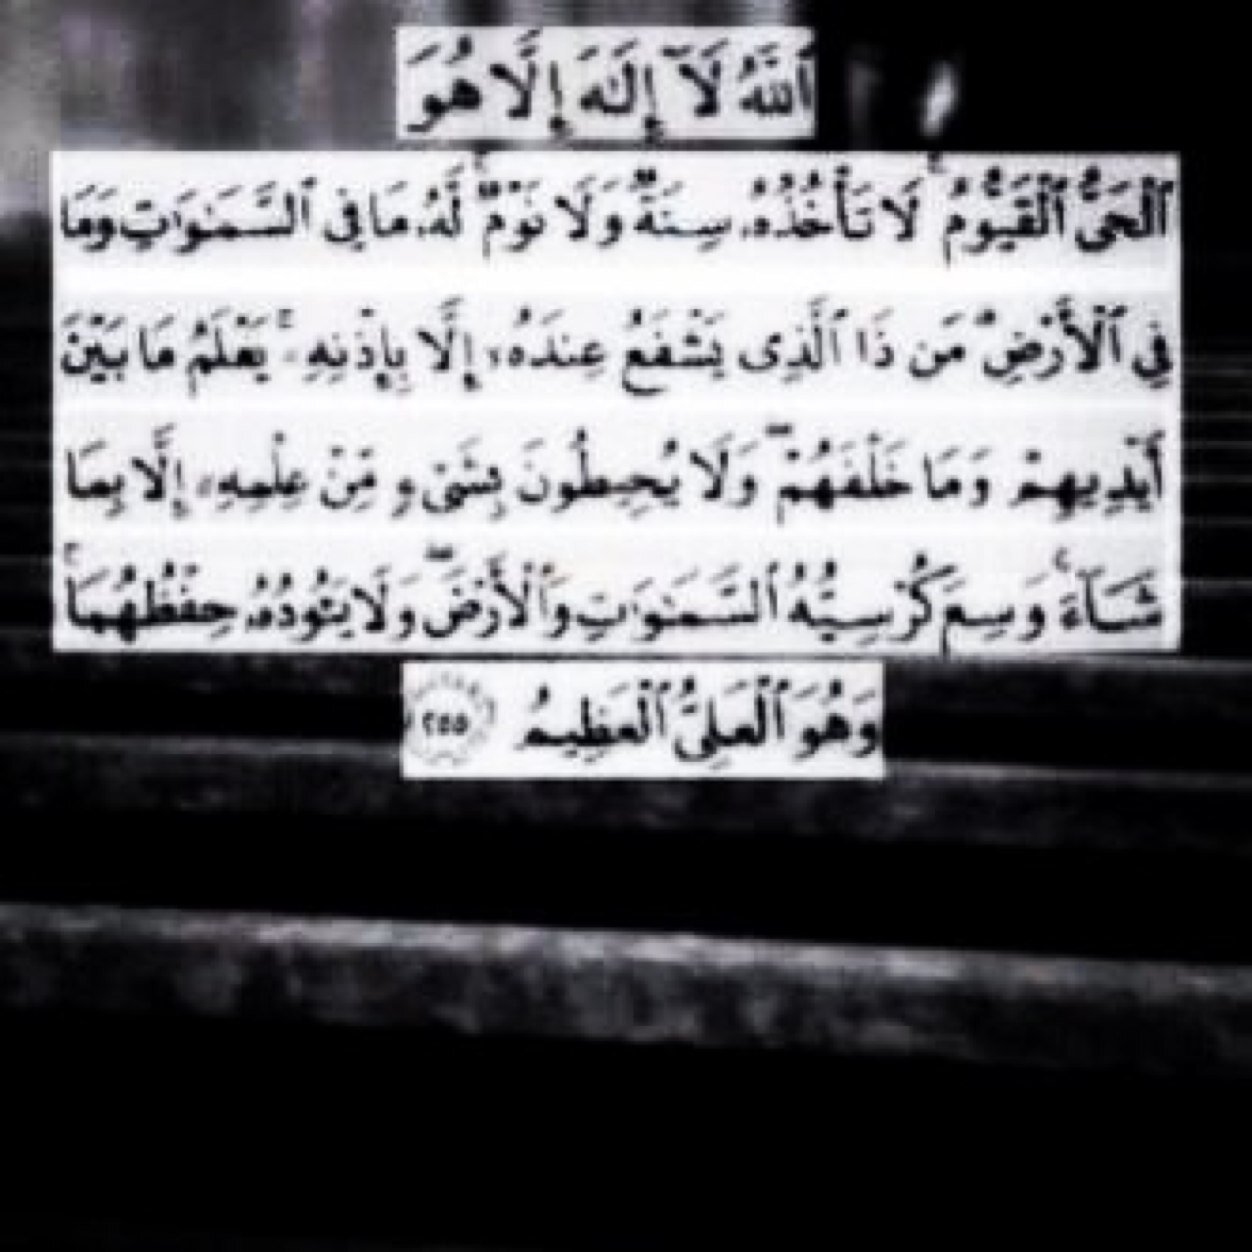 ٱللَّهُ لَآ إِلَـٰهَ إِلَّا هُوَ
ٱلْحَىُّ ٱلْقَيُّومُ ۚ لَا تَأْخُذُهُۥ سِنَةٌ وَلَا نَوْمٌ ۚ لَّهُۥ مَا فِى ٱلسَّمَـٰوَٰتِ وَمَا
فِى ٱلْأَرْضِ ۗ مَن ذَا ٱلَّذِى يَشْفَعُ عِندَهُۥٓ إِلَّا بِإِذْنِهِۦ ۚ يَعْلَمُ مَا بَيْنَ
أَيْدِيهِمْ وَمَا خَلْفَهُمْ ۖ وَلَا يُحِيطُونَ بِشَىْءٍ مِّنْ عِلْمِهِۦٓ إِلَّا بِمَا
شَآءَ ۚ وَسِعَ كُرْسِيُّهُ ٱلسَّمَـٰوَٰتِ وَٱلْأَرْضَ ۖ وَلَا يَـُٔودُهُۥ حِفْظُهُمَا ۚ
وَهُوَ ٱلْعَلِىُّ ٱلْعَظِيمُ ٢٥٥